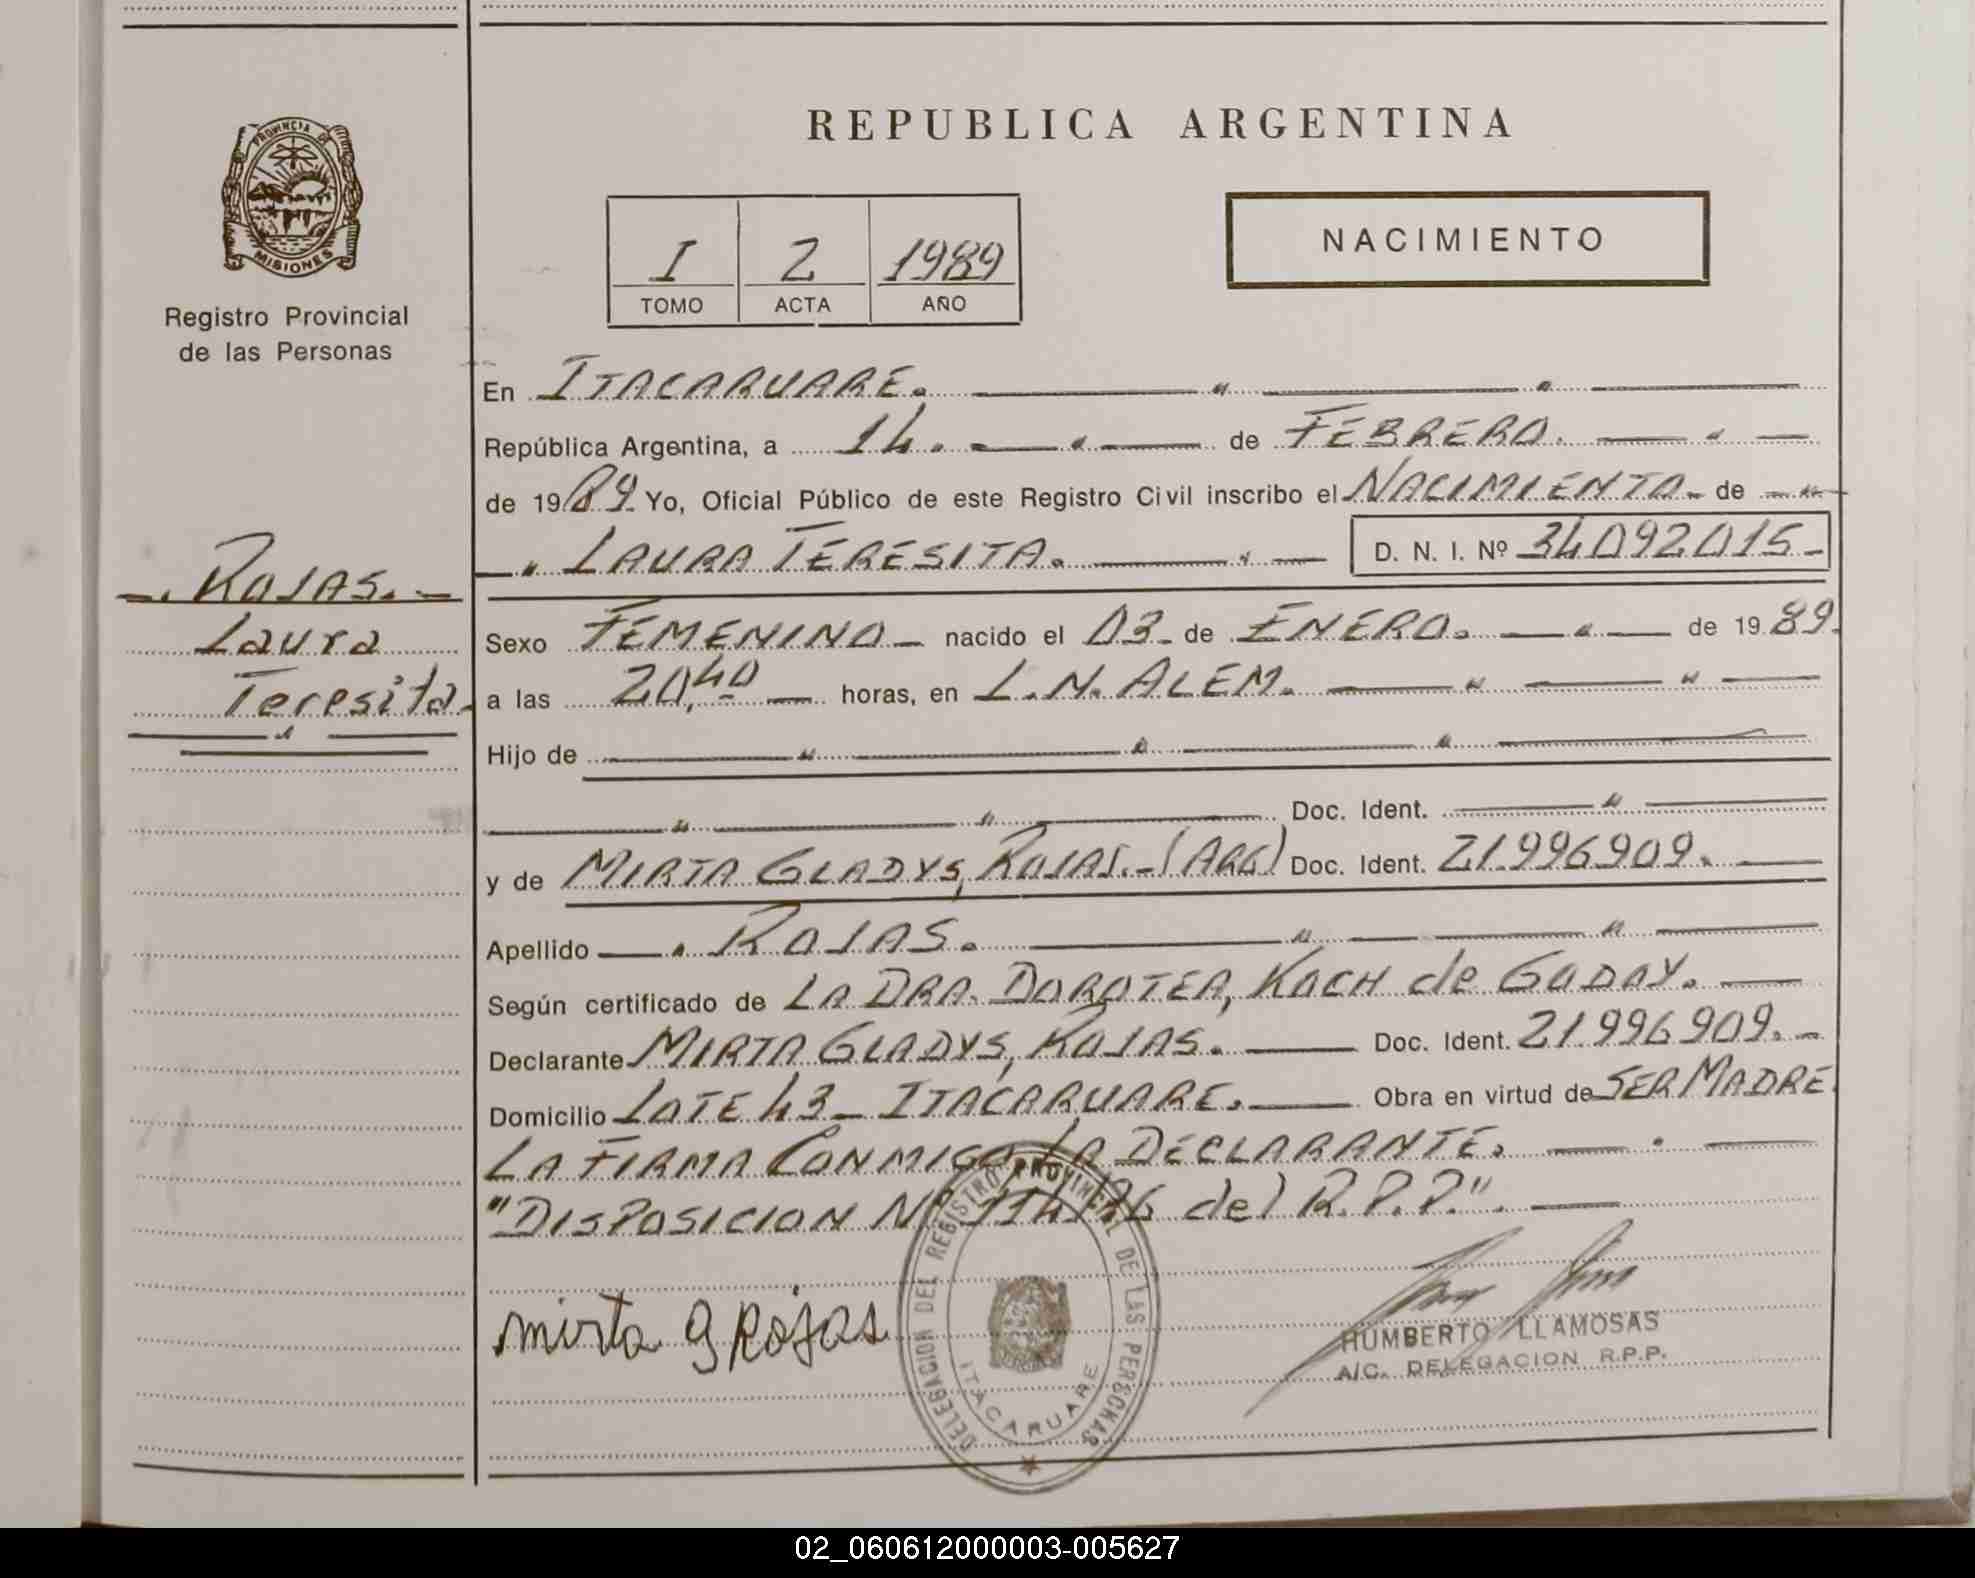 PROVINCIA DE
MISIONES
Registro Provincial
de las Personas
ROJAS.
Laura
Teresita.
REPUBLICA ARGENTINA
I 2 1989
TOMO ACTA AÑO
NACIMIENTO
En ITACARUARE.
República Argentina, a 14. de FEBRERO.
de 1989. Yo, Oficial Público de este Registro Civil inscribo el NACIMIENTO de
LAURA TERESITA. D. N. I. Nº 34092015
Sexo FEMENINO nacido el 03 de ENERO. de 1989.
a las 20,40 horas, en L.N. ALEM.
Hijo de
Doc. Ident.
y de MIRTA GLADYS, ROJAS.-(ARG) Doc. Ident. 21.996909.
Apellido ROJAS.
Según certificado de LA DRA. DOROTEA, KOCH de GODOY.
Declarante MIRTA GLADYS, ROJAS. Doc. Ident. 21.996909.
Domicilio LOTE 43 - ITACARUARE. Obra en virtud de SER MADRE.
LA FIRMA CONMIGO LA DECLARANTE.
"DISPOSICION Nº 114/86 del R.P.P.".
mirta g Rojas
DELEGACION DEL REGISTRO PROVINCIAL DE LAS PERSONAS
ITACARUARE
HUMBERTO LLAMOSAS
A/C. DELEGACION R.P.P.
02_060612000003-005627